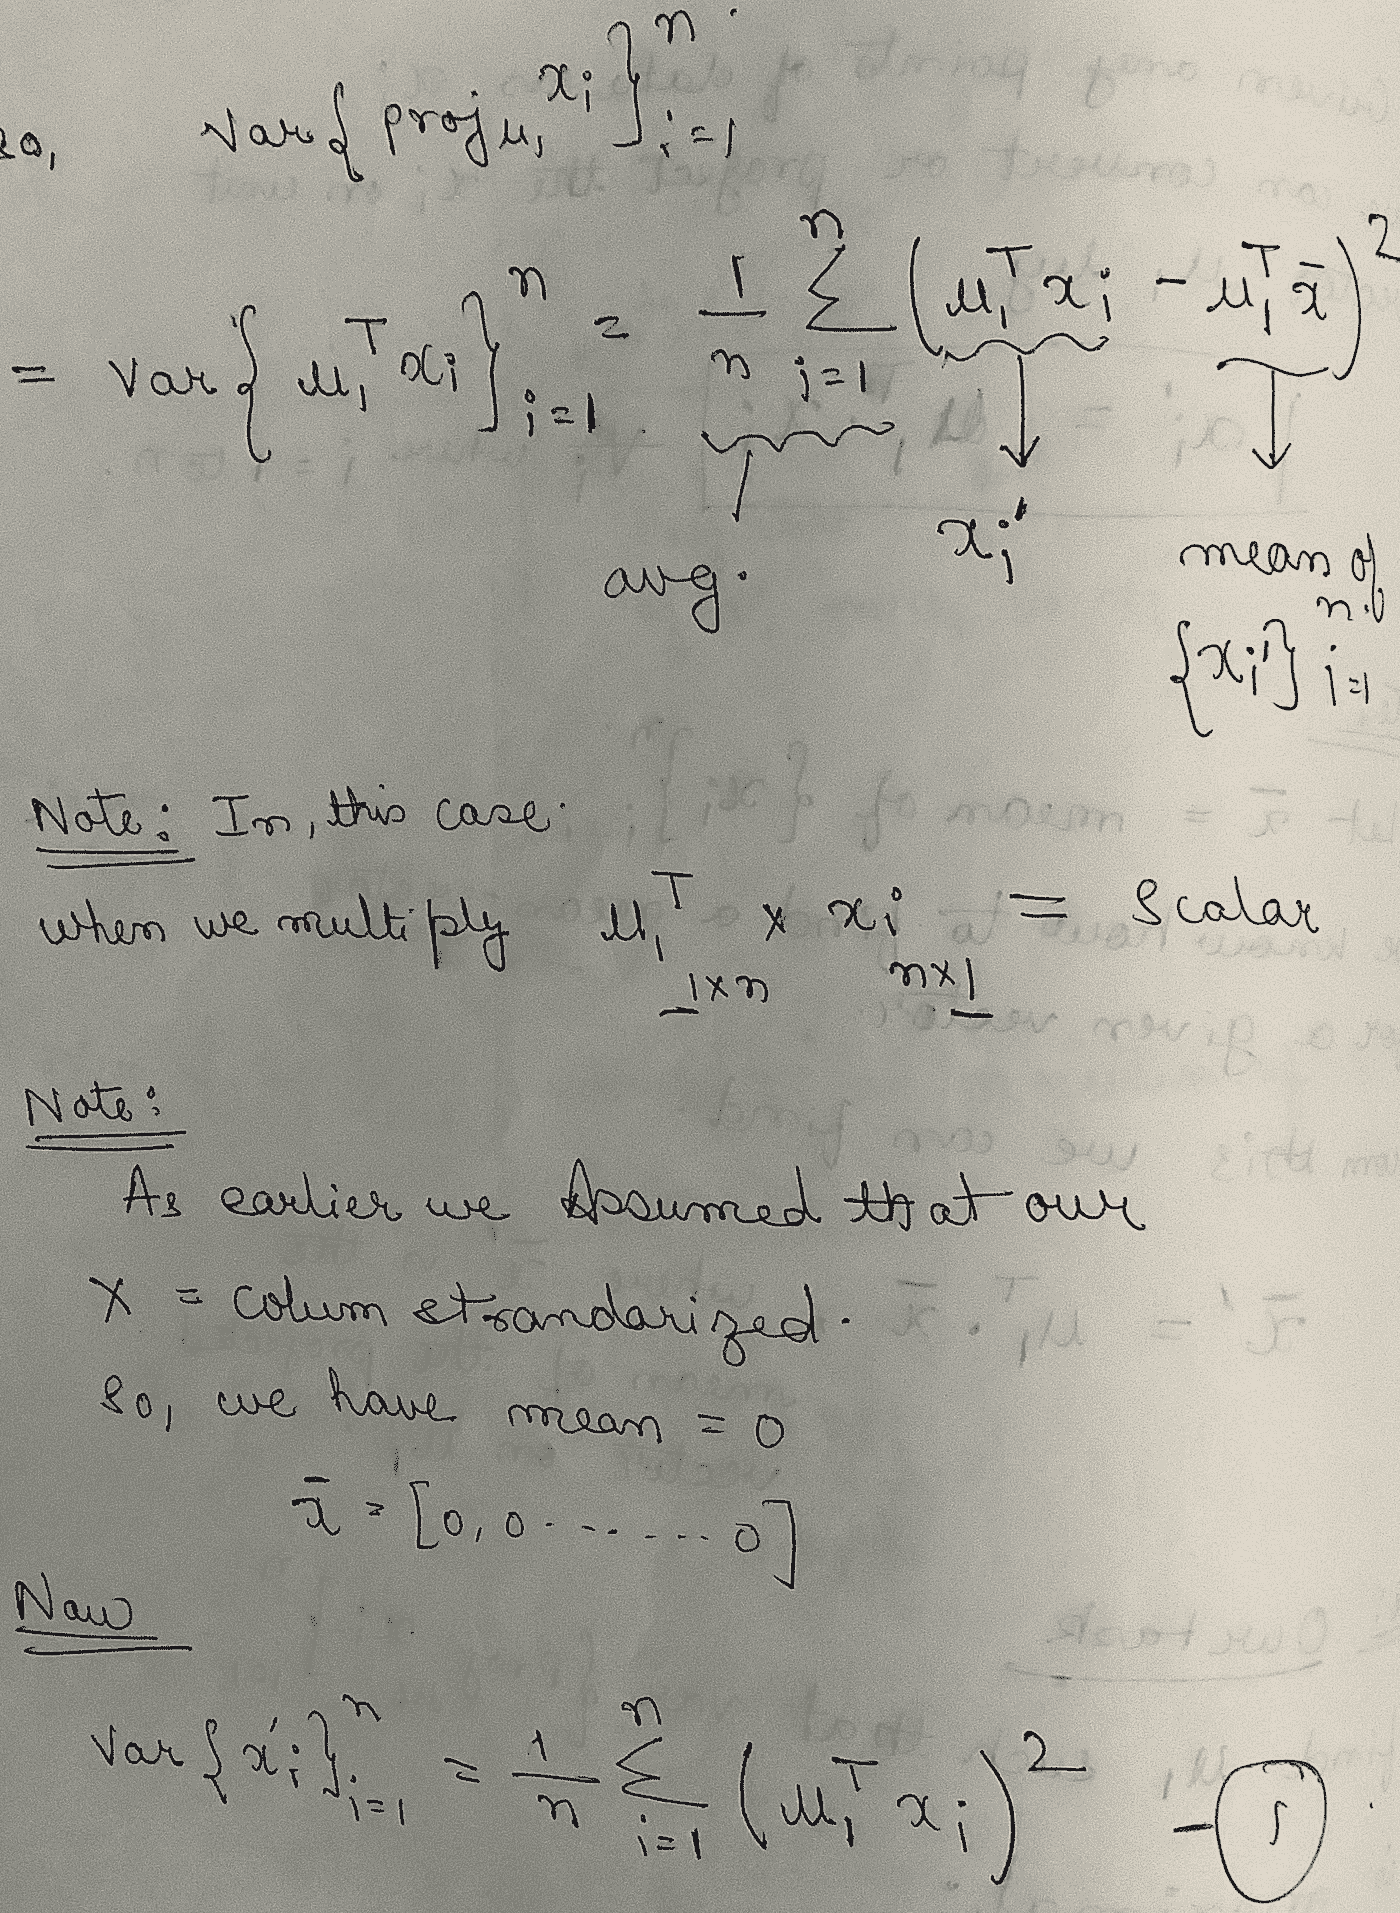 so, Var{ proj μ₁ xᵢ }ⁿ ᵢ₌₁
= Var{ μ₁ᵀ xᵢ }ⁿ ᵢ₌₁ = 1/n Σⁿ ᵢ₌₁ ( μ₁ᵀ xᵢ - μ₁ᵀ x̄ )²
avg. xᵢ' mean of
{xᵢ'}ⁿ ᵢ₌₁
Note: In, this case.
when we multiply μ₁ᵀ × xᵢ = Scalar
1×n n×1
Note:
As earlier we Assumed that our
X = colum strandarized.
so, we have mean = 0
x̄ = [0, 0 ....... 0]
Now
Var{x'ᵢ}ⁿ ᵢ₌₁ = 1/n Σⁿ ᵢ₌₁ ( μ₁ᵀ xᵢ )² - ①